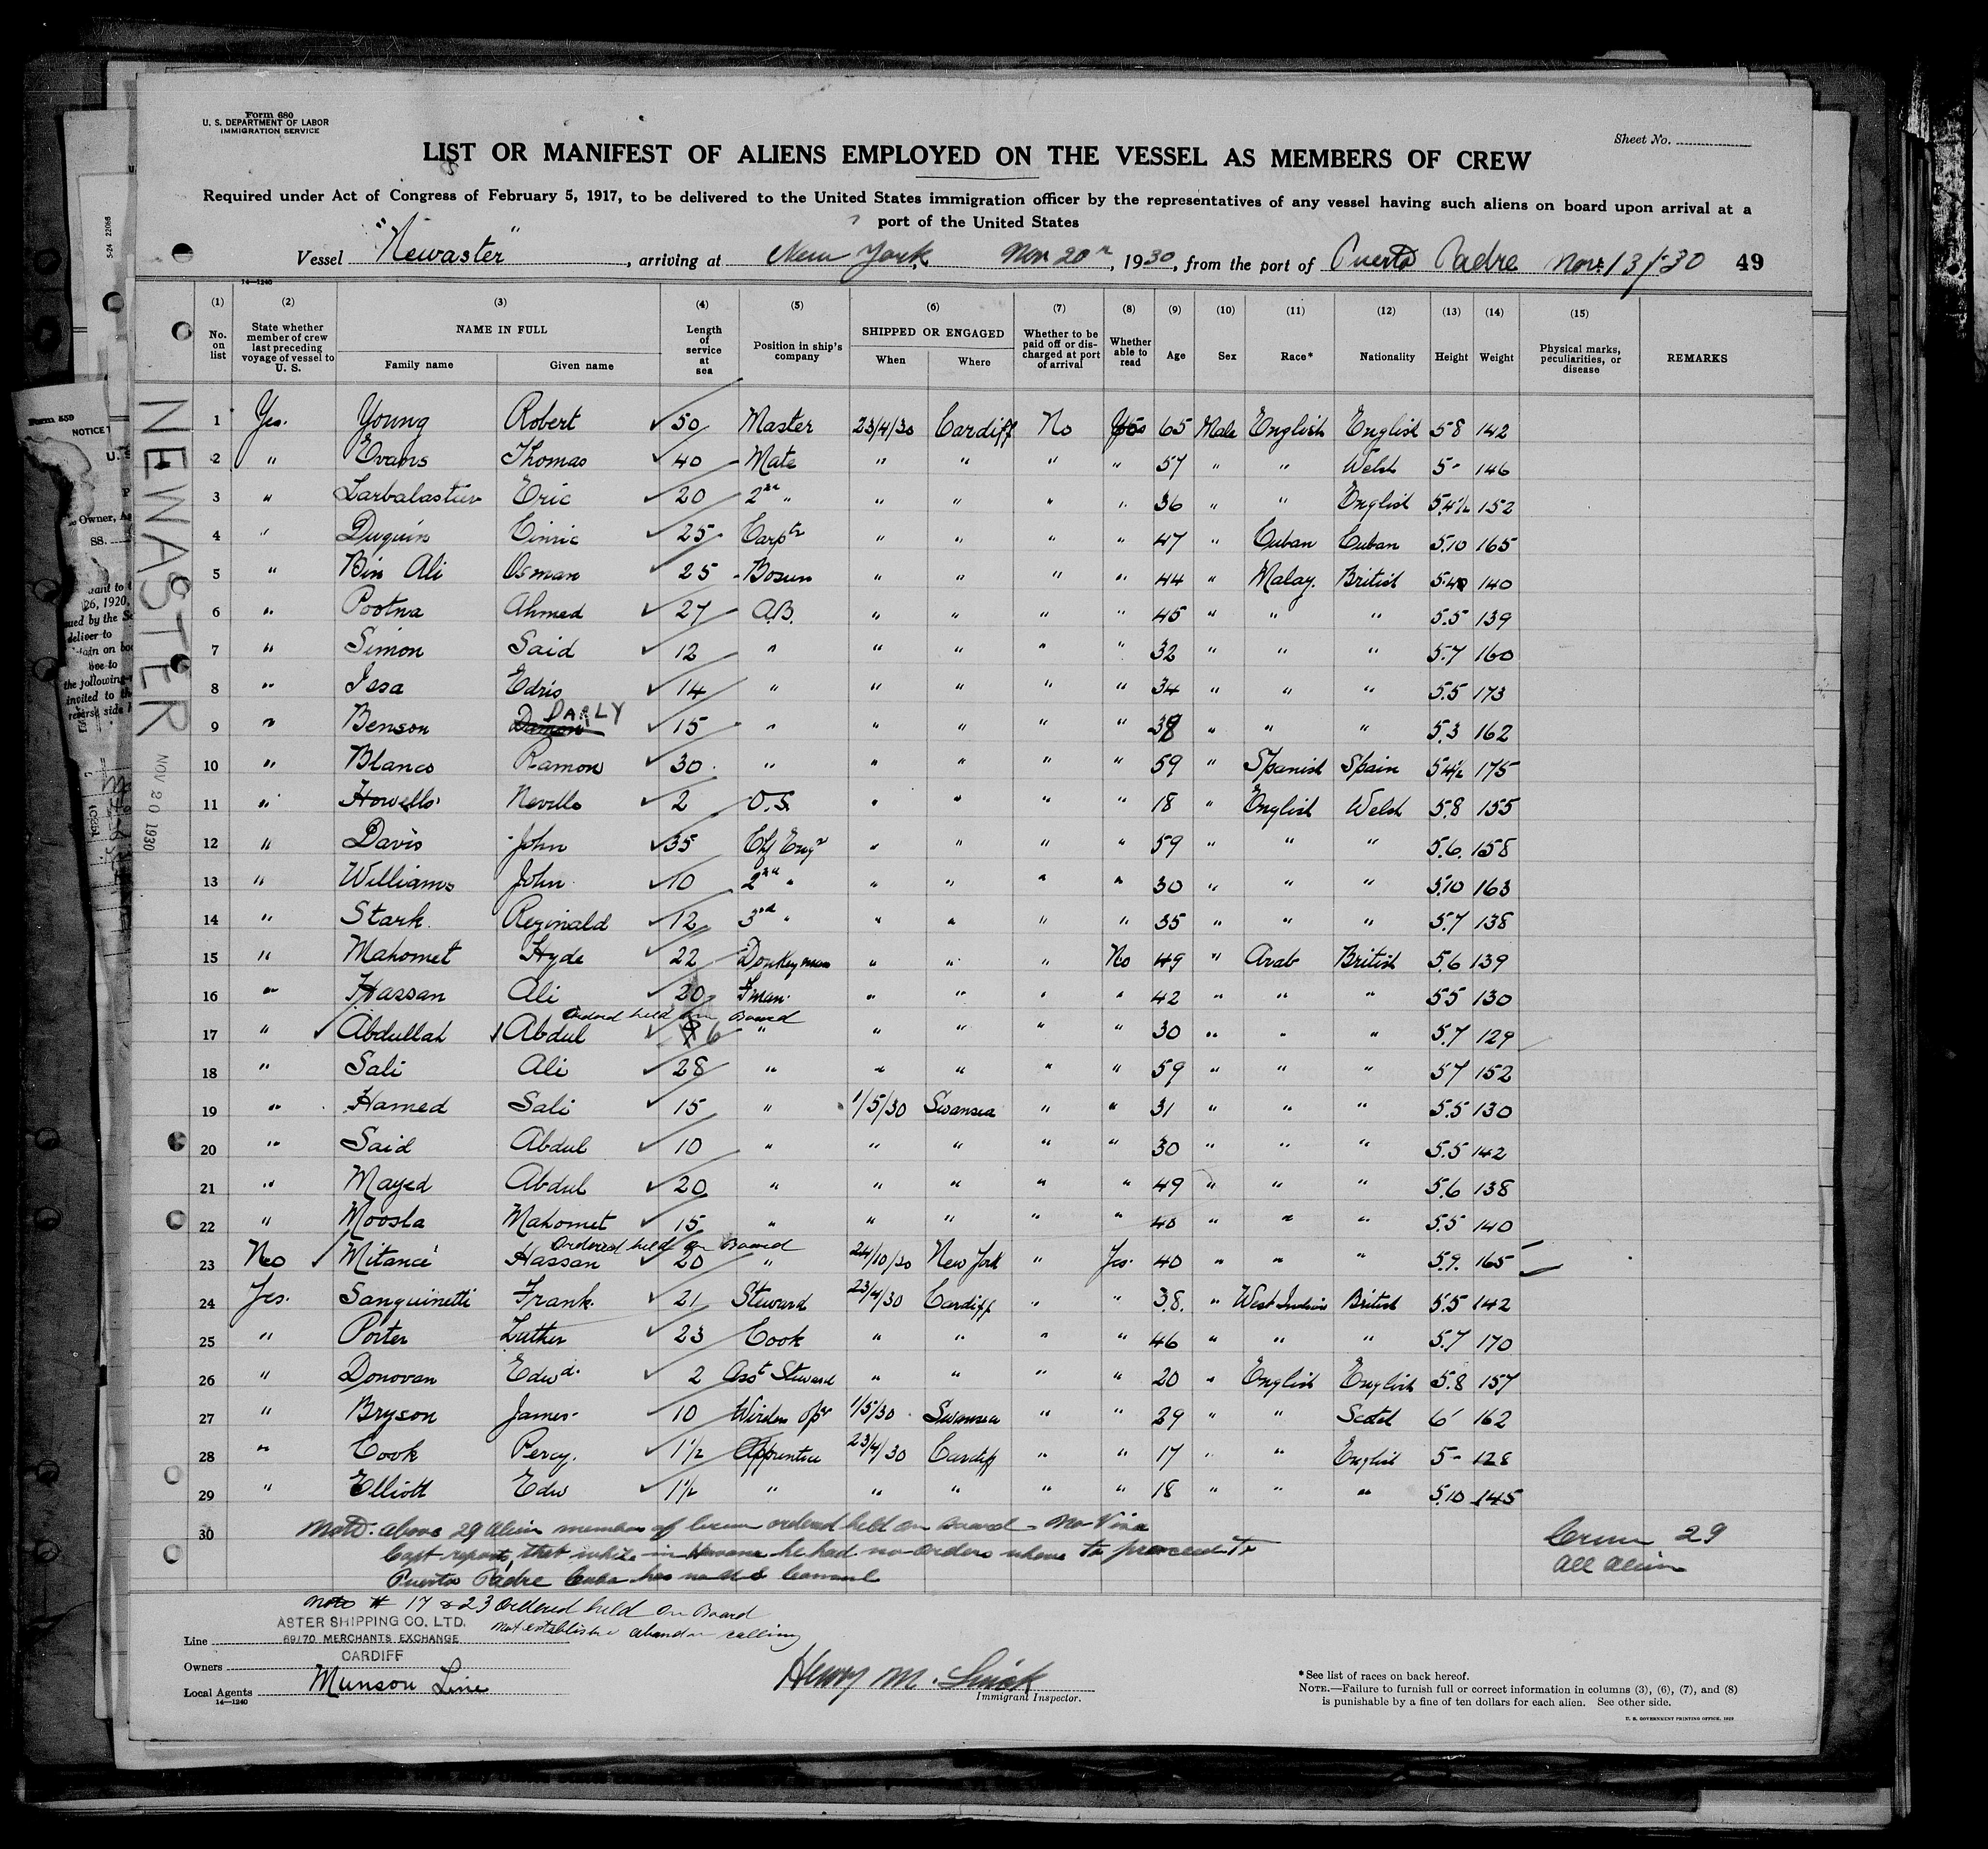 Form 680
U. S. DEPARTMENT OF LABOR
IMMIGRATION SERVICE
Sheet No.
LIST OR MANIFEST OF ALIENS EMPLOYED ON THE VESSEL AS MEMBERS OF CREW
Required under Act of Congress of February 5, 1917, to be delivered to the United States immigration officer by the representatives of any vessel having such aliens on board upon arrival at a
port of the United States
Vessel "Newaster", arriving at New York Nov 20th, 1930, from the port of Puerto Padre Nov. 13/30 49
14—1240
(1) (2) (3) (4) (5) (6) (7) (8) (9) (10) (11) (12) (13) (14) (15)
No. on list State whether member of crew last preceding voyage of vessel to U. S. NAME IN FULL Family name Given name Length of service at sea Position in ship's company SHIPPED OR ENGAGED When Where Whether to be paid off or discharged at port of arrival Whether able to read Age Sex Race* Nationality Height Weight Physical marks, peculiarities, or disease REMARKS
1 Yes. Young Robert 50 Master 23/4/30 Cardiff No Yes 65 Male English English 5 8 142
2 " Evans Thomas 40 Mate " " " " 57 " " Welsh 5- 146
3 " Larbalastier Eric 20 2nd " " " " " 36 " " English 5.4½ 152
4 " Duquin 25 Carptr " " " " 47 " Cuban Cuban 5.10 165
5 " Bin Ali Osman 25 Bosun " " " " 44 " Malay. British 140
6 " Pootna Ahmed 27 A.B. " " " " 45 " " " 5.5 139
7 " Simon Said 12 " " " " " 32 " " " 5.7 160
8 " Issa Edris 14 " " " " " 34 " " " 5.5 173
9 " Benson DARLY 15 " " " " " 38 " " " 5.3 162
10 " Blanco Ramon 30 " " " " " 59 " Spanish Spain 5 4½ 175
11 " Howells Neville 2 O.S. " " " " 18 " English Welsh 5.8 155
12 " Davis John 35 Chf Engr " " " " 59 " " " 5.6. 158
13 " Williams John 10 2nd " " " " " 30 " " " 5.10 163
14 " Stark Reginald 12 3rd " " " " " 35 " " " 5.7 138
15 " Mahomet Hyde 22 Donkeyman " " " No 49 " Arab British 5.6 139
16 " Hassan Ali 20 F'man " " " " 42 " " " 5 5 130
Ordered held on Board
17 " Abdullah Abdul 6 " " " " " 30 " " " 5.7 129
18 " Sali Ali 28 " " " " " 59 " " " 5 7 152
19 " Hamed Sali 15 " 1/5/30 Swansea " " 31 " " " 5.5 130
20 " Said Abdul 10 " " " " " 30 " " " 5.5 142
21 " Mayed Abdul 20 " " " " " 49 " " " 5.6 138
22 " Moosla Mahomet 15 " " " " " 40 " " " 5.5 140
Ordered held on Board
23 No Mitance Hassan 20 " 24/10/30 New York " Yes. 40 " " " 5.9. 165
24 Yes. Sanguinetti Frank. 21 Steward 23/4/30 Cardiff " " 38. " West Indian British 5.5 142
25 " Porter Luther 23 Cook " " " " 46 " " " 5.7 170
26 " Donovan Edwd. 2 Asst Steward " " " " 20 " English English 5.8 157
27 " Bryson James 10 Wireless Opr 1/5/30 Swansea " " 29 " " Scotch 6' 162
28 " Cook Percy. 1½ Apprentice 23/4/30 Cardiff " " 17 " " English 5- 128
29 " Elliott Edw 1½ " " " " " 18 " " " 5.10 145
30 Note. above 29 alien members of crew ordered held on board - No Visa
Capt reports, that while in Havana he had no orders where to proceed to
Puerto Padre Cuba has no U S Consul
Crew 29
All alien
Note # 17 & 23 Ordered held on Board
not establish calling
Line ASTER SHIPPING CO. LTD.
69/70 MERCHANTS EXCHANGE
Owners CARDIFF
Local Agents Munson Line
14—1240
Henry M.
Immigrant Inspector.
*See list of races on back hereof.
NOTE.—Failure to furnish full or correct information in columns (3), (6), (7), and (8)
is punishable by a fine of ten dollars for each alien. See other side.
U. S. GOVERNMENT PRINTING OFFICE
NEWASTER
NOV 20 1930
Form 559
NOTICE